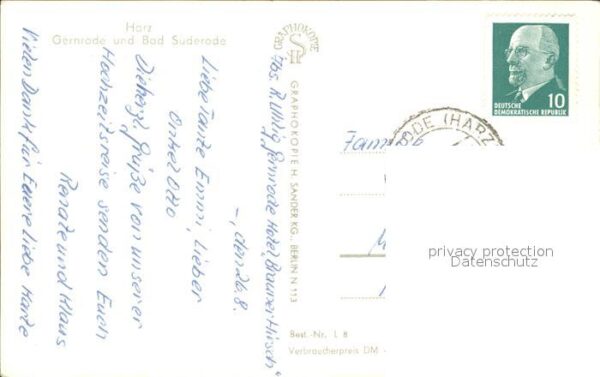 Harz
Gernrode und Bad Suderode
Abs. K. Uhlig, Gernrode Hotel „Brauner Hirsch“
–, den 26.8.
Liebe Tante Emmi, Lieber
Onkel Otto
Die herzl. Grüße von unserer
Hochzeitsreise senden Euch
Renate und Klaus
Vielen Dank für Euere liebe Karte
GRAPHOKOPIE
GRAPHOKOPIE H. SANDER KG., BERLIN N 113
Best.-Nr. L 8
Verbraucherpreis DM -
DEUTSCHE
DEMOKRATISCHE REPUBLIK
10
RODE (HARZ
Familie
privacy protection
Datenschutz